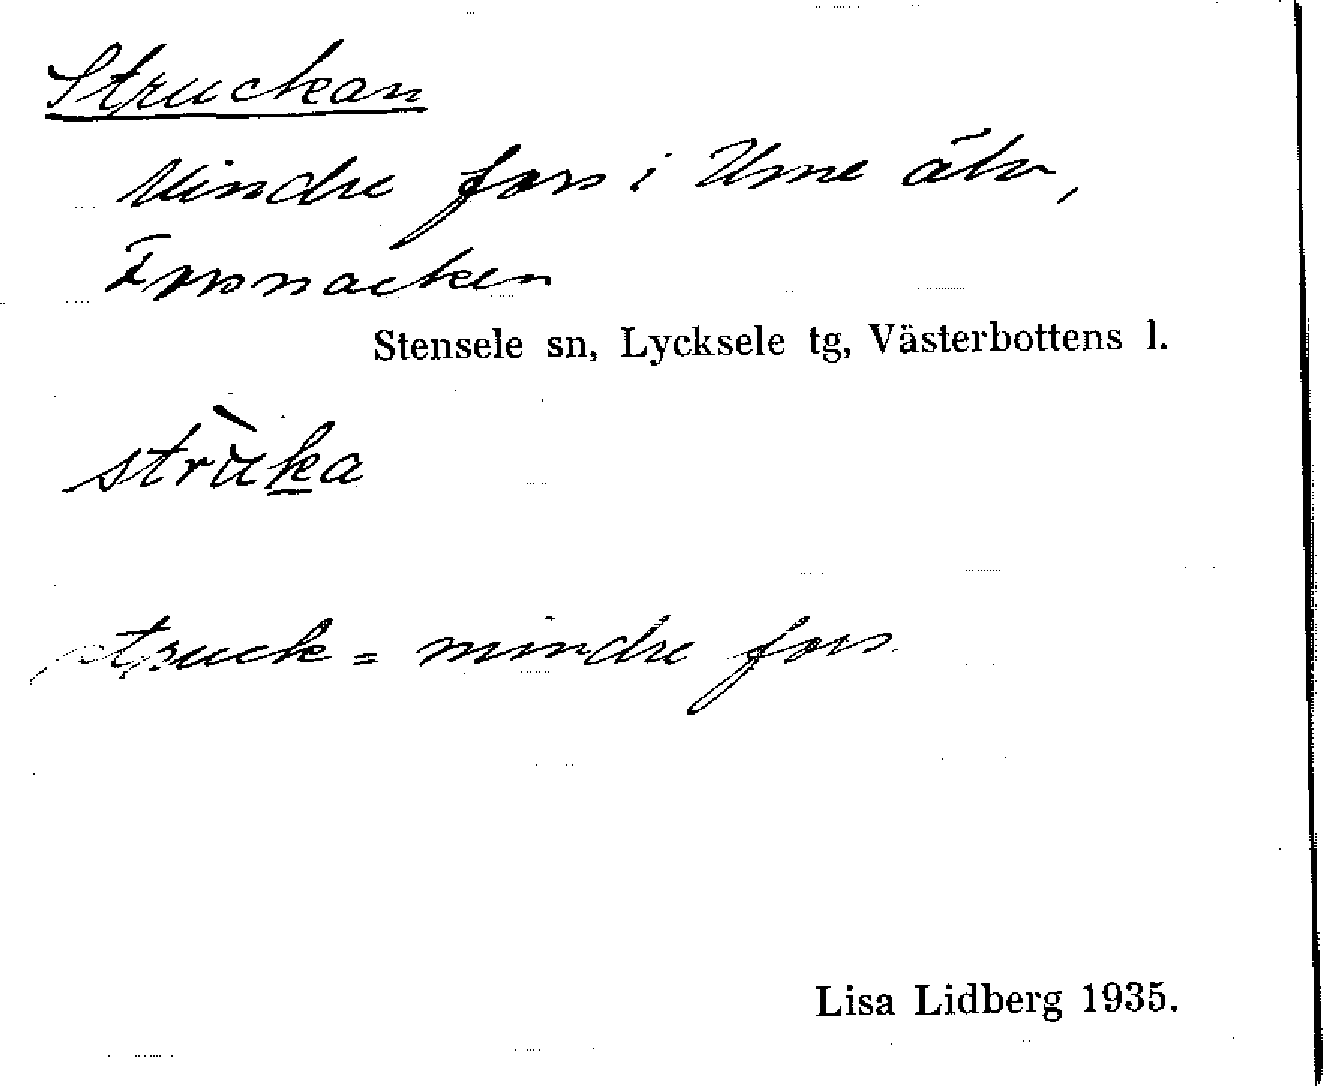 Struckan
Mindre fors i Ume älv,
Forsnacken
Stensele sn, Lycksele tg, Västerbottens l.
strùka
struck = mindre fors.
Lisa Lidberg 1935.